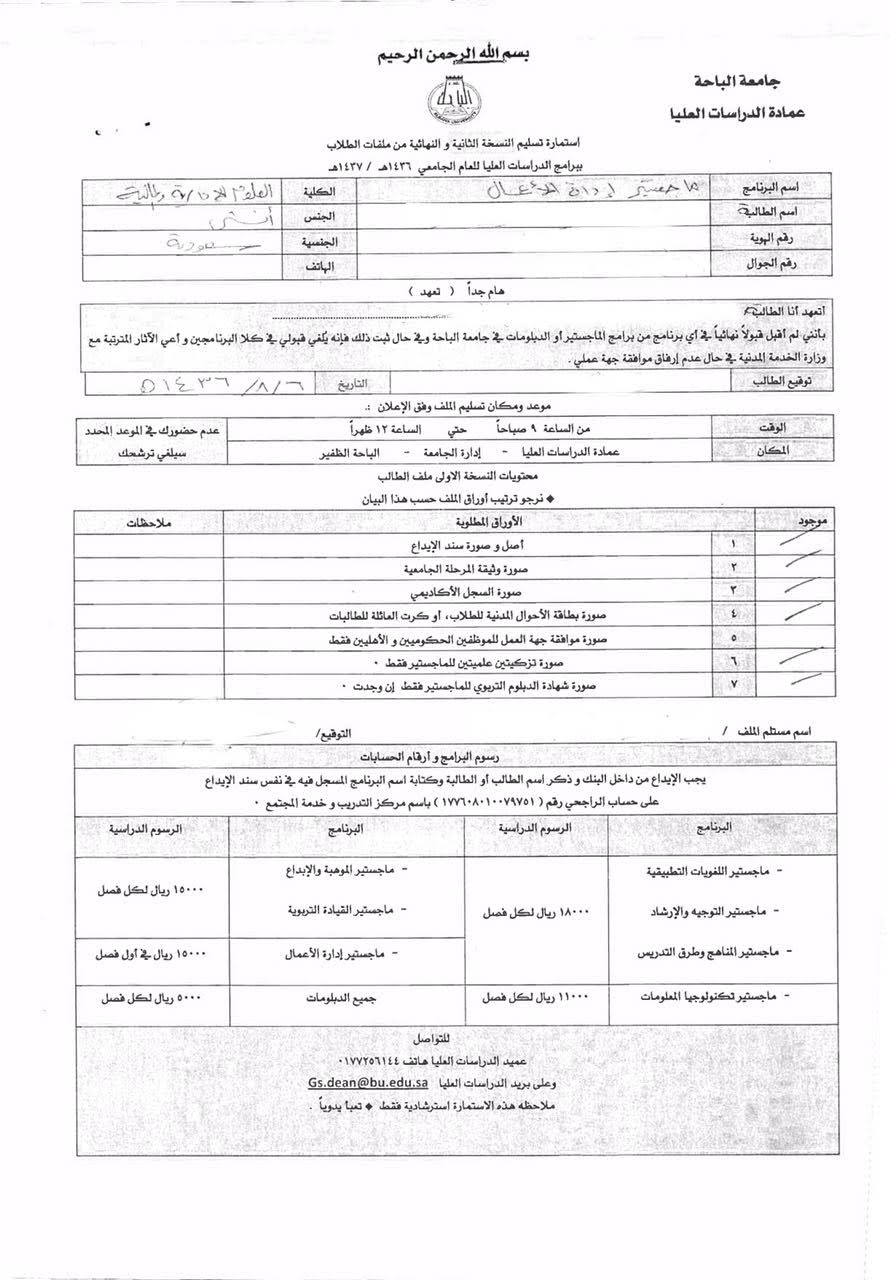 بسم الله الرحمن الرحيم
جامعة الباحة
عمادة الدراسات العليا
الباحة
ALBAHA UNIVERSITY
استمارة تسليم النسخة الثانية و النهائية من ملفات الطلاب
ببرامج الدراسات العليا للعام الجامعي ١٤٣٦هـ / ١٤٣٧هـ
اسم البرنامج ماجستير إدارة الأعمال الكلية العلوم الإدارية والمالية
اسم الطالبة الجنس أنثى
رقم الهوية الجنسية سعودية
رقم الجوال الهاتف
هام جداً ( تعهد )
أتعهد أنا الطالبة ............................................
بأنني لم أقبل قبولاً نهائياً في أي برنامج من برامج الماجستير أو الدبلومات في جامعة الباحة وفي حال ثبت ذلك فإنه يُلغي قبولي في كلا البرنامجين و أعي الآثار المترتبة مع
وزارة الخدمة المدنية في حال عدم إرفاق موافقة جهة عملي .
توقيع الطالب التاريخ ٦ / ٨ / ١٤٣٦ه
موعد ومكان تسليم الملف وفق الإعلان :.
الوقت من الساعة ٩ صباحاً حتي الساعة ١٢ ظهراً عدم حضورك في الموعد المحدد
المكان عمادة الدراسات العليا - إدارة الجامعة - الباحة الظفير سيلغي ترشحك
محتويات النسخة الاولى ملف الطالب
◆ نرجو ترتيب أوراق الملف حسب هذا البيان
موجود الأوراق المطلوبة ملاحظات
١ أصل و صورة سند الإيداع
٢ صورة وثيقة المرحلة الجامعية
٣ صورة السجل الأكاديمي
٤ صورة بطاقة الأحوال المدنية للطلاب، أو كرت العائلة للطالبات
٥ صورة موافقة جهة العمل للموظفين الحكوميين و الأهليين فقط
٦ صورة تزكيتين علميتين للماجستير فقط ٠
٧ صورة شهادة الدبلوم التربوي للماجستير فقط إن وجدت ٠
اسم مستلم الملف / التوقيع/
رسوم البرامج و أرقام الحسابات
يجب الإيداع من داخل البنك و ذكر اسم الطالب أو الطالبة وكتابة اسم البرنامج المسجل فيه في نفس سند الإيداع
على حساب الراجحي رقم ( ١٧٧٦٠٨٠١٠٠٧٩٧٥١ ) باسم مركز التدريب و خدمة المجتمع ٠
البرنامج الرسوم الدراسية البرنامج الرسوم الدراسية
- ماجستير اللغويات التطبيقية - ماجستير الموهبة والإبداع
١٥٠٠٠ ريال لكل فصل
- ماجستير التوجيه والإرشاد ١٨٠٠٠ ريال لكل فصل - ماجستير القيادة التربوية
- ماجستير المناهج وطرق التدريس - ماجستير إدارة الأعمال ١٥٠٠٠ ريال في أول فصل
- ماجستير تكنولوجيا المعلومات ١١٠٠٠ ريال لكل فصل جميع الدبلومات ٥٠٠٠ ريال لكل فصل
للتواصل
عميد الدراسات العليا هاتف ٠١٧٧٢٥٦١٤٤
وعلى بريد الدراسات العليا Gs.dean@bu.edu.sa
ملاحظه هذه الاستمارة استرشادية فقط ◆ تعبأ يدوياً .